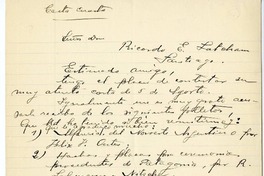 Carta Cuarta
Señor Don
Ricardo E. Latcham
Santiago.
Estimado amigo,
tengo el placer de contestar su
muy atenta carta de 5 de Agosto.
Igualmente me es muy grato acu-
sar recibo de los siguientes folletos,
que Ud. ha tenido a bien remitirme:
1) del Noroeste Argentino por
Félix F. Outes
2) Hachas placas por ceremonias
procedentes de Patagonia, por R.